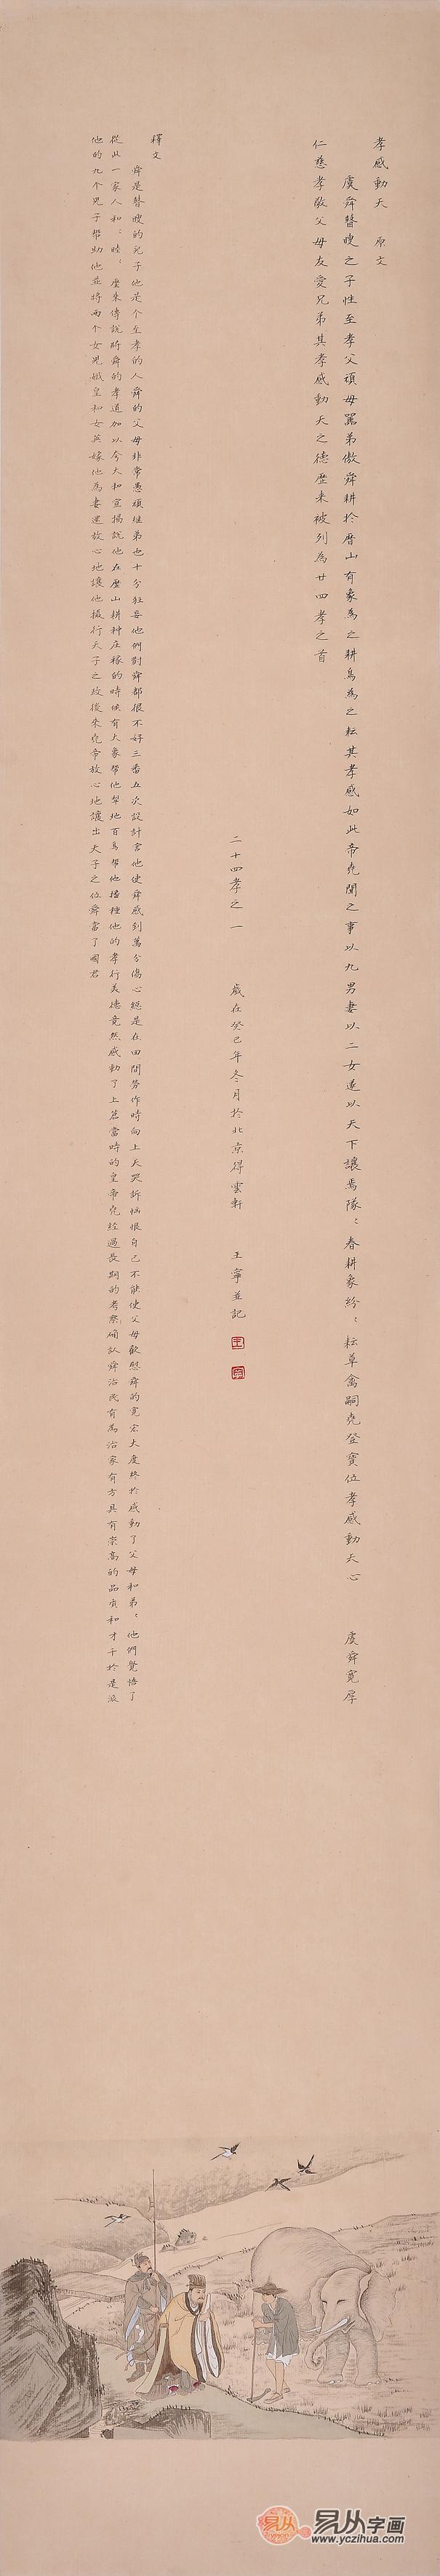 孝感動天　原文
虞舜瞽瞍之子性至孝父頑母嚚弟傲舜耕於歷山有象為之耕鳥為之耘其孝感如此帝堯聞之事以九男妻以二女遂以天下讓焉隊：春耕象紛：耘草禽嗣堯登寶位孝感動天心　虞舜寬厚
仁慈孝敬父母友愛兄弟其孝感動天之德歷來被列為廿四孝之首
二十四孝之一　歲在癸巳年冬月於北京得雲軒　王寧並記
王
寧
釋文
舜是瞽瞍的兒子他是个至孝的人舜的父母非常愚頑继弟也十分狂妄他們對舜都很不好三番五次設計害他使舜感到萬分傷心經是在田間勞作時向上天哭訴惱恨自己不能使父母歡慰舜的寬宏大度終於感動了父母和弟：他們覺悟了
從此一家人和：睦：歷來傳說所舜的孝道加以今大和宣揚說他在歷山耕种庄稼的時候有大象帮他犁地百鳥帮他播種他的孝行美德竟然感動了上蒼當時的皇帝堯经過長期的考察確认舜治民有為治家有方具有崇高的品质和才干於是派
他的九个兒子帮助他並將两个女兒娥皇和女英嫁他為妻還放心地讓他攝行天子之政後來堯帝放心地讓出天子之位舜當了國君
易从
Yiyoung.cn
易从字画
www.yczihua.com